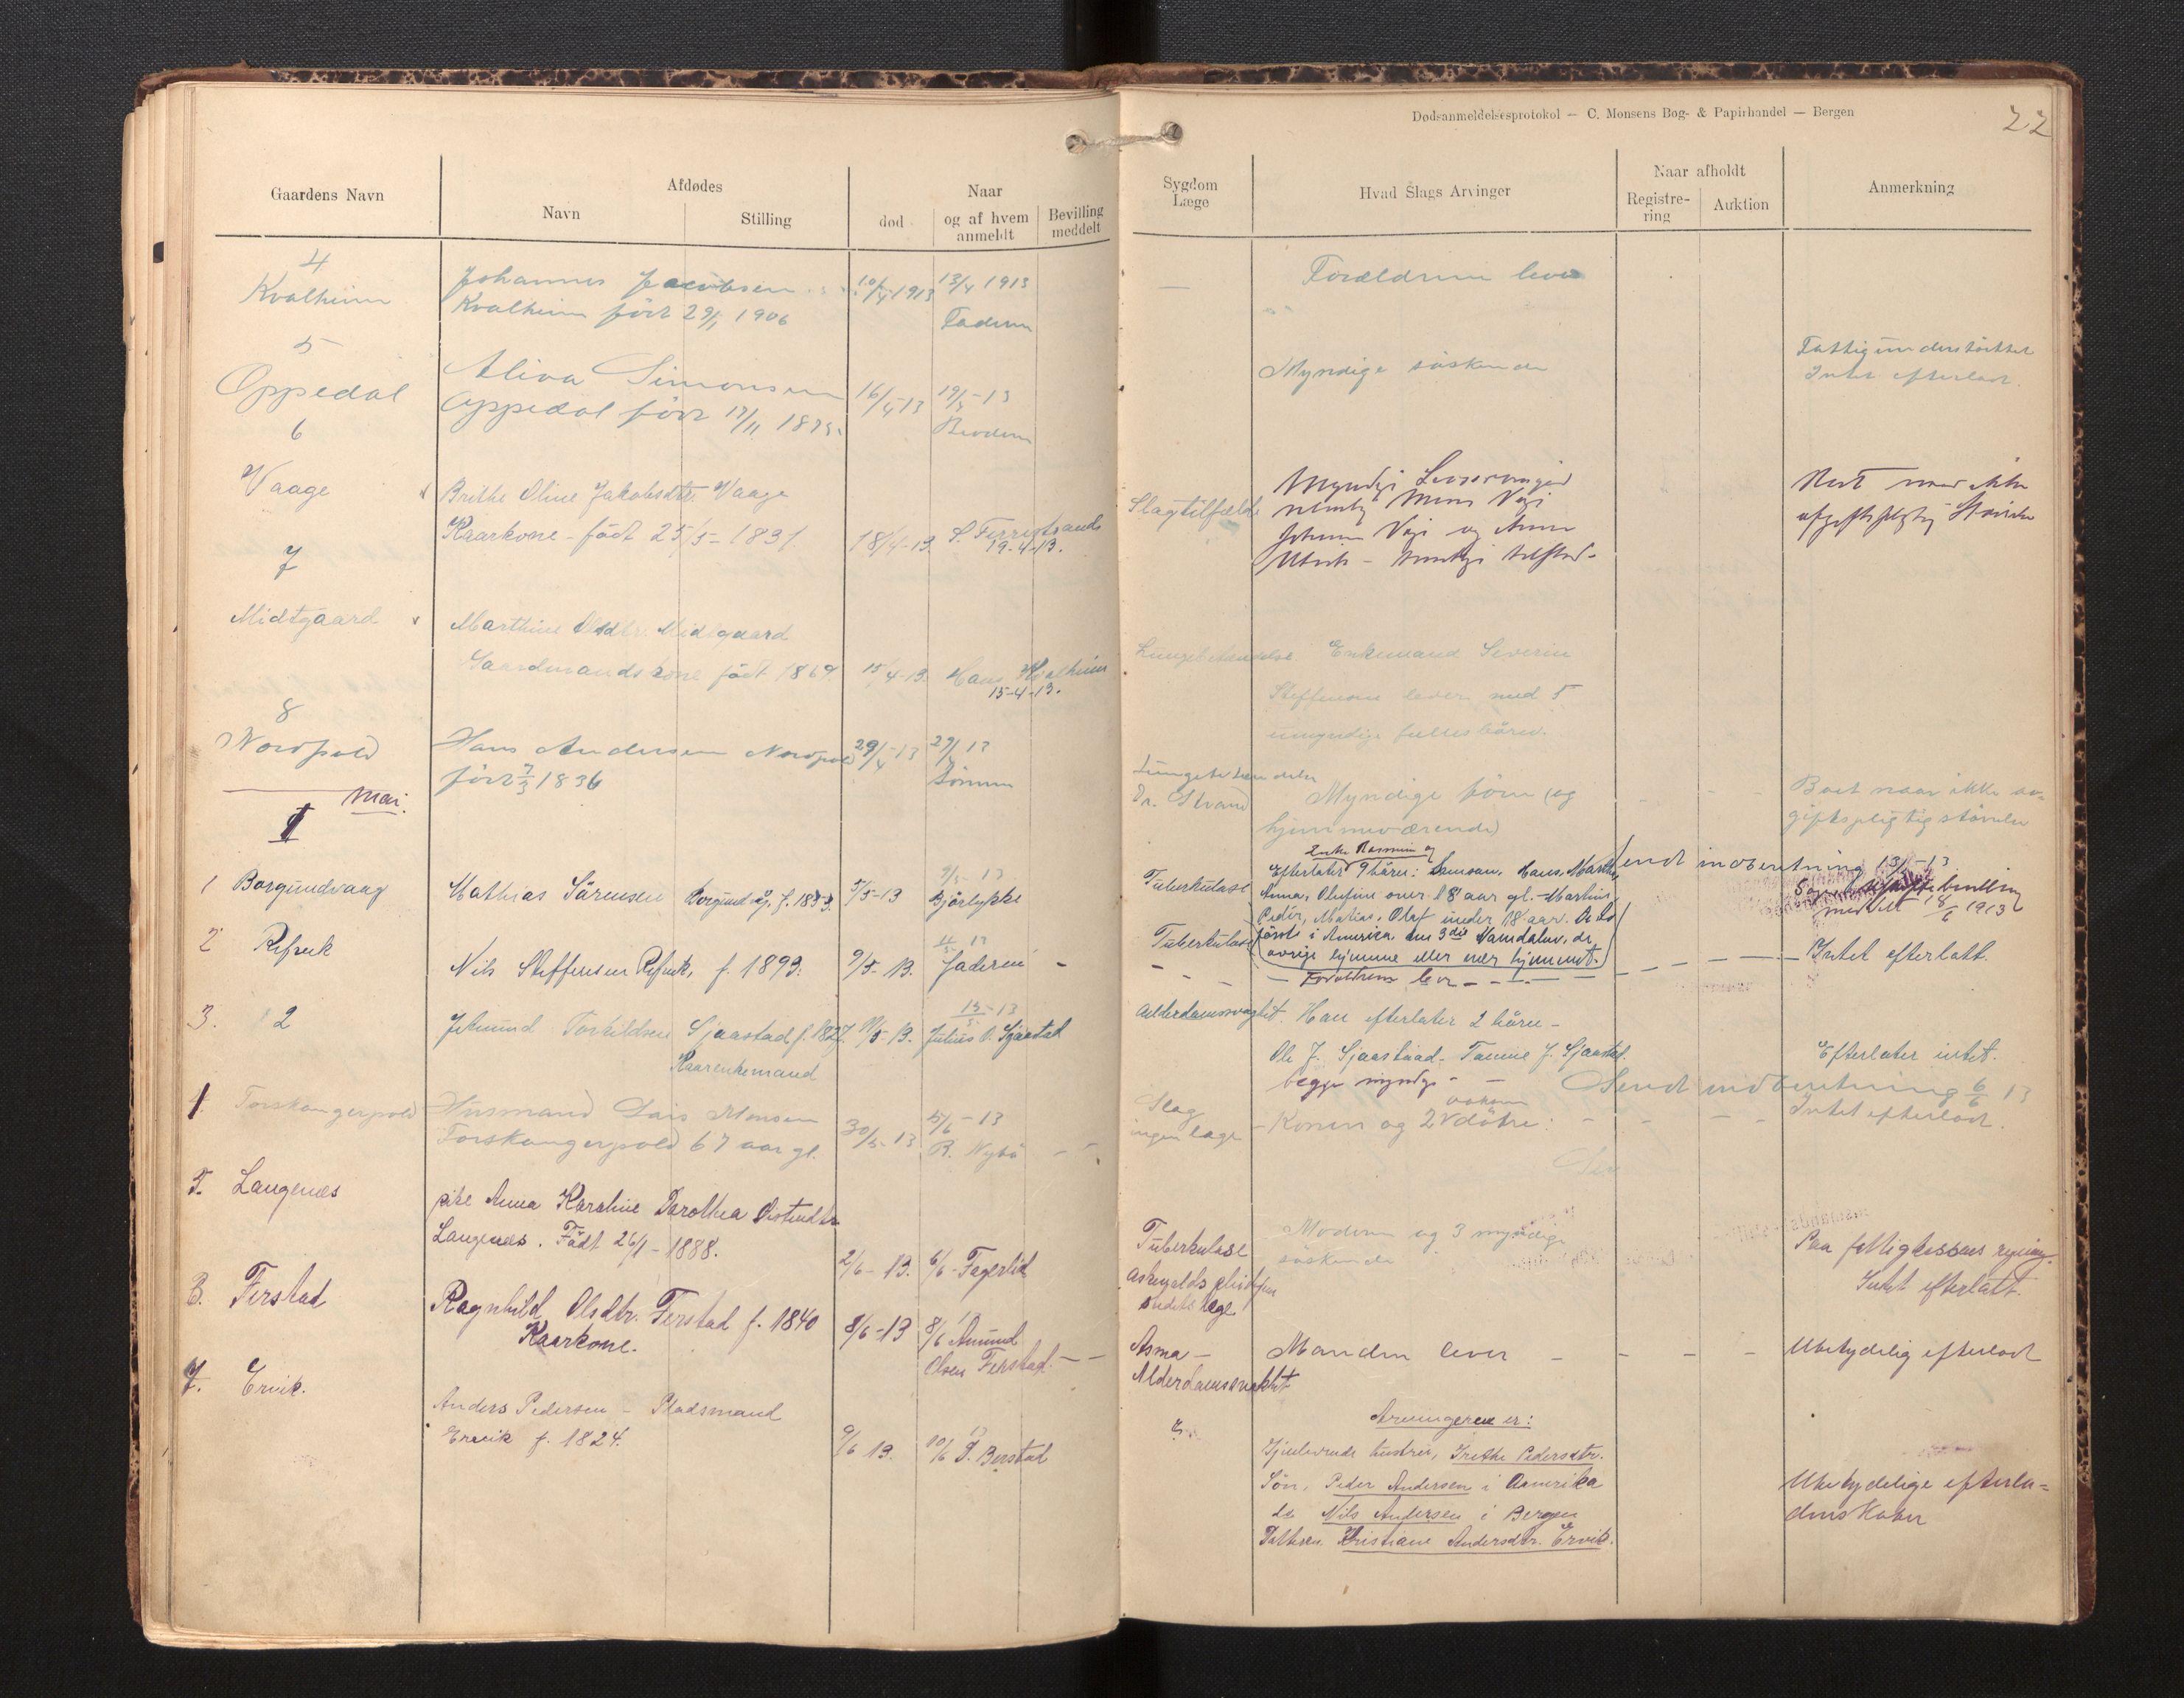 Dødsanmeldelsesprotokol — C. Monsens Bog- & Papirhandel — Bergen
22
Gaardens Navn
Afdødes
Navn
Stilling
Naar
død
og af hvem anmeldt
Bevilling meddelt
Sygdom
Læge
Hvad Slags Arvinger
Naar afholdt
Registre-
ring
Auktion
Anmerkning
4
Kvalheim
Johannes Jacobsen
Kvalheim född 29/1 1906
10/4 1913
13/4 1913
Faderen
—
Forældrene lever
5
Oppedal
Alida Simonsen
Oppedal född 17/11
16/4-13
Broderen
Myndige söskende
Fattigunderstöttet
Intet efterladt.
6
Vaage
Brithe Oline Jakobsdtr. Vaage
Kaarkone - födt 25/5- 1831.
18/4-13.
S. Ferrestrand
19-4-13.
Slagtilfælde
Myndige Livsarvinger
nemlig Mons
og Anna
ikke
7
Midtgaard
Marthine Olsdtr. Midtgaard
Gaardmandskone födt 1869.
15/4-13.
Hans Kvalheim
15-4-13.
Lungebetændelse
Enkemand Severin
Steffensen lever med 5
umyndige fellesbörn.
8
Nordpold
Hans Andersen Nordpold
född 7/3 1836
29/4-13
29/4 13
Sönnen
Lungebetændelse
Dr. Strand
Myndige börn (og
hjemmeværende)
Boet naar ikke av-
giftspligtig störrelse
Mai.
1
Borgundvaag
Mathias Sörensen Borgundvåg. f. 1853.
5/5-13
9/5-13
Björlykke
Tuberkulose
Enke Rasmine og
Efterlater 9 börn: Severin, Hans, Marthe,
Anna, Olufine over 18 aar gl. - Martin,
Peder, Matias, Olaf under 18 aar. De to
förste i Amerika, den 3die Namdalen, de
övrige hjemme eller nær hjemmet.
Sendt indberetning 13/5-13
meddelt 18/6 1913
2
Refvik
Nils Steffensen Refvik, f. 1893.
9/5-13.
Faderen
Tuberkulose
Forældrene lever
Intet efterlatt.
3. 2
Torkildsen Sjaastad f. 1827.
Kaarenkemand
13-13
Julius O. Sjaastad
Alderdomssvaghet.
Han efterlater 2 börn -
Ole J. Sjaastad - J. Sjaastad.
begge myndge -
Efterlater intet.
Sendt indberetning 6/6 13
4
Torskangerpold
Husmand Lars Monsen
Torskangerpold 67 aar gl.
30/5-13
5/6-13
R. Nybö
Slag
ingen læge
Konen og 2 voksne dötre:
Intet efterladt.
5. Langenes
pike Anna Karoline Dorothea
Langenes. Födt 26/1 - 1888.
2/6-13.
6/6 Fagerlid
Tuberkulose
Moderen og 3 myndige
söskende
Paa fattigkassens regning.
Intet efterlatt.
6. Ferstad
Ragnhild Olsdtr. Ferstad f. 1840
Kaarkone.
8/6-13
8/6 13 Amund
Olsen Ferstad.
Asma -
Alderdomssvakhet
Manden lever
Ubetydelig efterladt
7. Ervik.
Anders Pedersen - Pladsmand
Ervik f. 1824.
9/6 13.
10/6 13 P. Berstad
Arvingerne er:
Gjenlevende hustru, Grethe Pedersdtr.
Sön, Peder Andersen i Amerika
do Nils Andersen i Bergen
Datteren Kristiane Andersdtr. Ervik.
Ubetydelige efterla-
denskaber